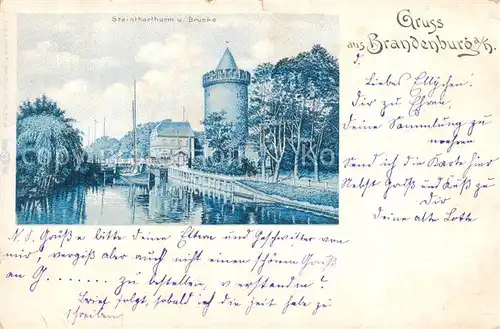 Steinthorthurm u. Brücke
Gruss
aus Brandenburg a/H.
Liebes Ellychen!
Dir zu Ehren,
deine Sammlung zu
mehren
Send ich die Karte hier
Nebst Gruß und Kuß zu
Dir
Deine alte Lotte
N.S. Grüße bitte deine Eltern und Geschwister von
mir, vergiß aber auch nicht einen schönen Gruß
an G........ zu bestellen, verstanden?
Brief folgt, sobald ich die Zeit habe zu
schreiben